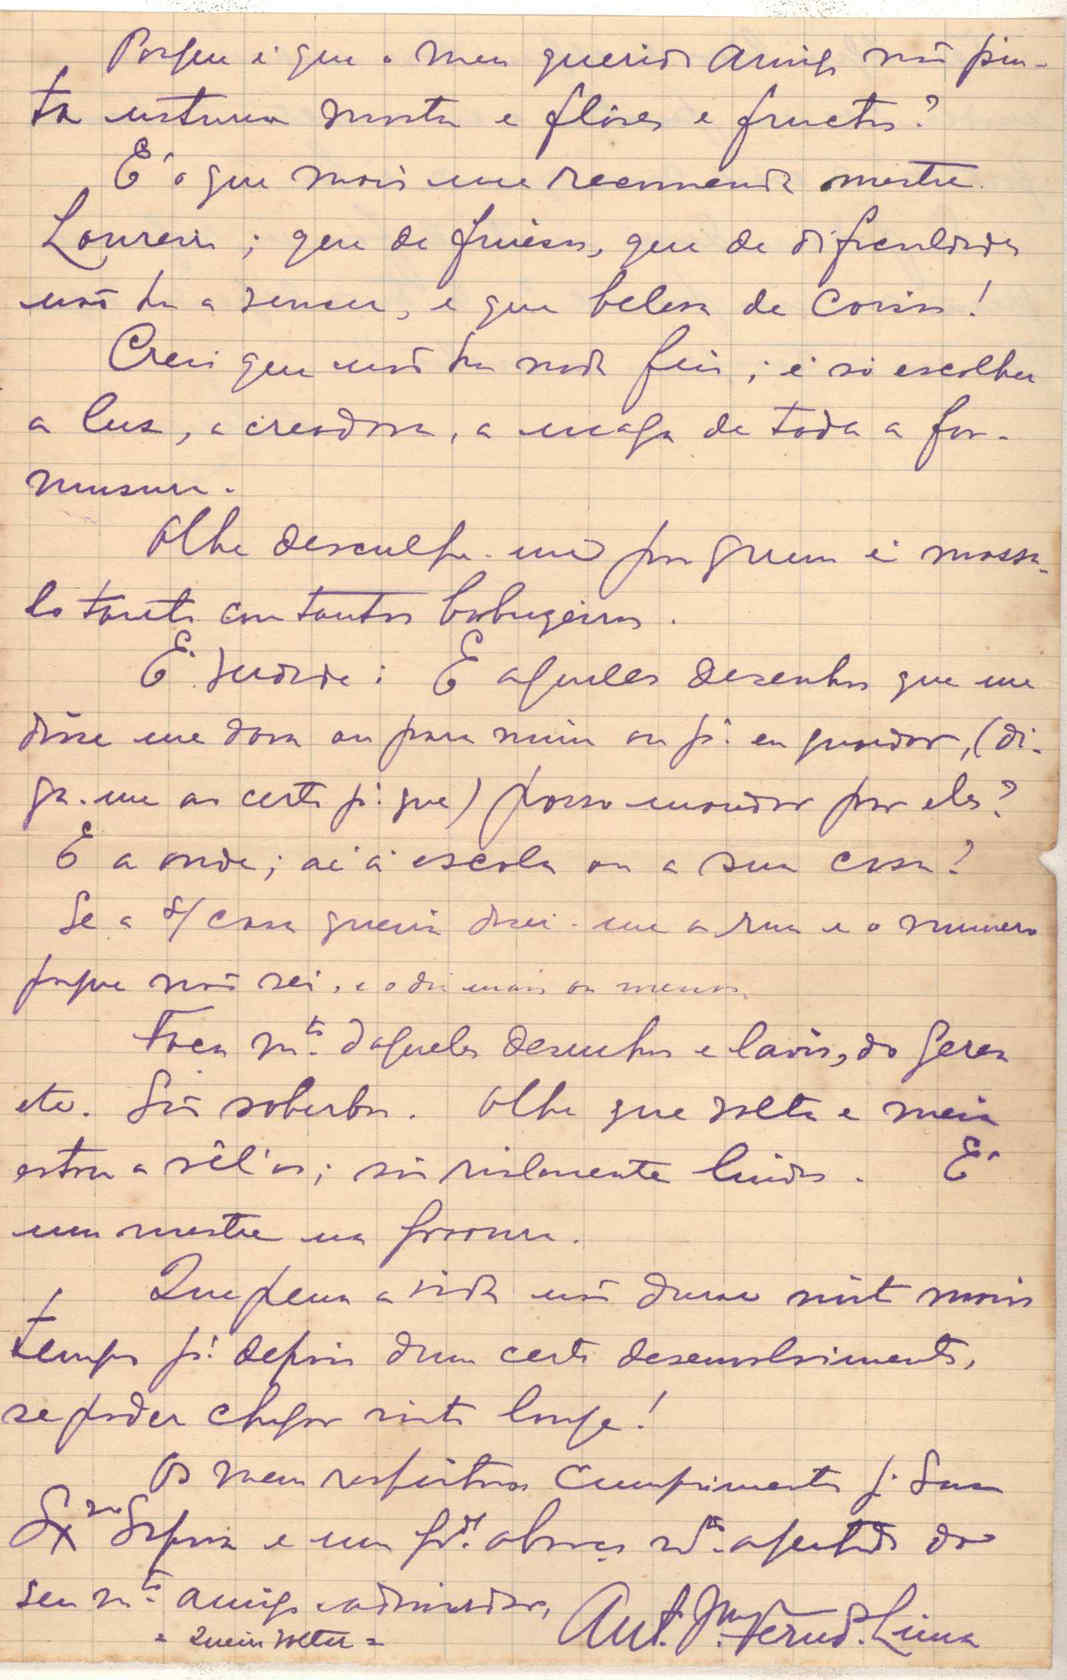 Porque é que o meu querido Amigo não pin-
ta natureza morta e flôres e fructos?
É o que mais me recomenda mestre
Loureiro; que de
não ha a vencer, e que belesa de coisas!
Creio que não ha nada feio; é só escolher
a luz, a creadora, a maga de toda a for-
mosura.
Olhe desculpe-me por quem é massa-
lo tanto com tantas babuzeiras.
É verdade: E aqueles desenhos que me
disse me dava ou para mim ou pª. eu guardar, (di-
ga-me ao certo pª. que) posso mandar por eles?
E a onde; aí á escola ou a sua casa?
Se a s/ casa queira dizer-me a rua e o numero
porque não sei, e o dia mais ou menos.
Faça mtos. daqueles desenhos e lavis, do Gerez
etc. São soberbos. Olhe que volta e meia
estou a vêl'os; são lindos. É
um mestre na
Que pena a vida não durar muito mais
tempo pª. depois dum certo desenvolvimento,
se poder chegar muito longe!
Os meus respeitosos cumprimentos pª. Sua
Exma Esposa e um gde. abraço mto. apertado do
seu mto. amigo e admirador,
Ant. Fernd. Lima
= Queira voltar =